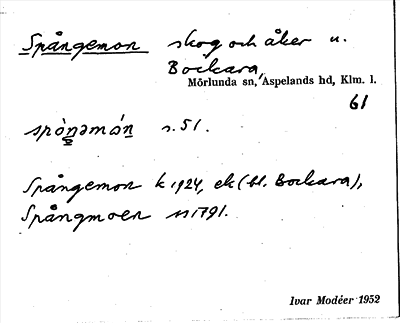 Spångemon skog och åker u.
Bockara,
Mörlunda sn, Aspelands hd, Klm. l.
61
spòŋəmón s. 51.
Spångemon k 1924, ek (bl. Bockara),
Spångmoen 1791.
Ivar Modéer 1952